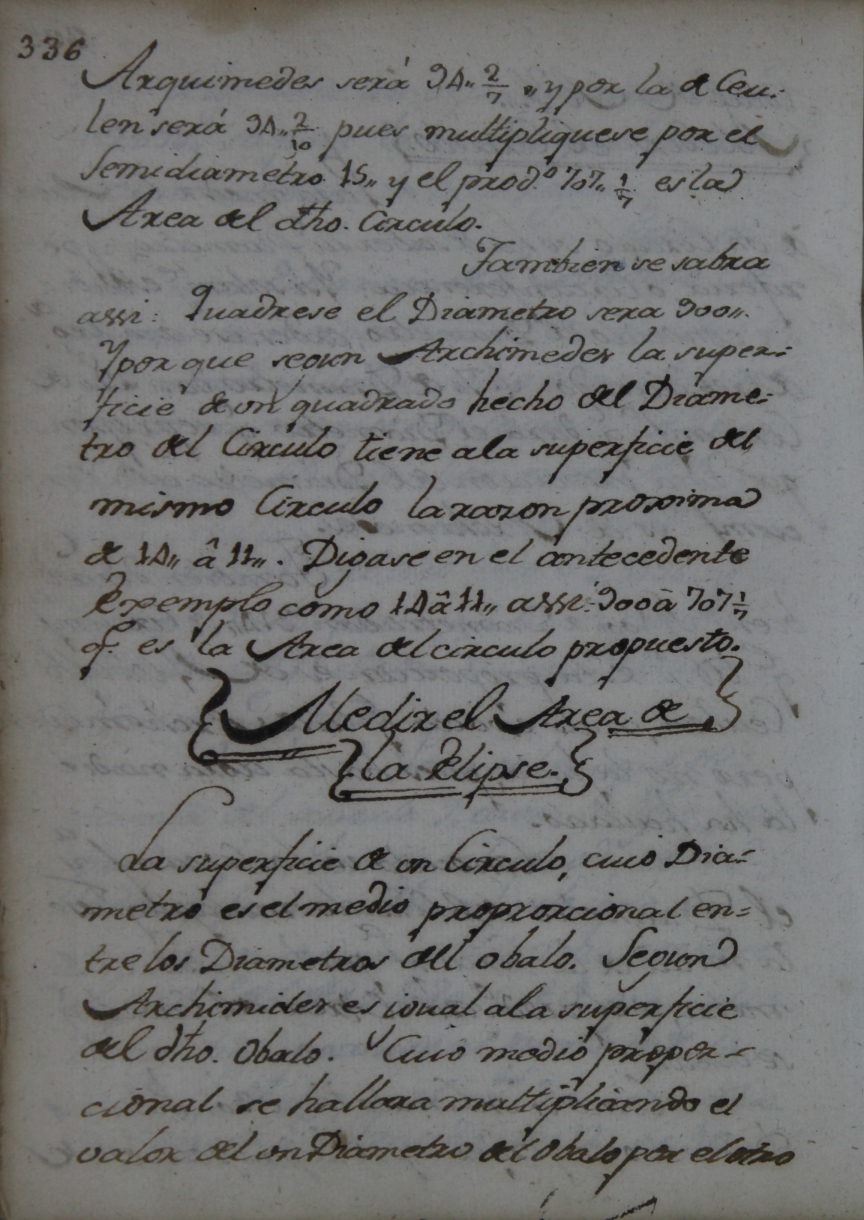 336
Arquimedes será 94,, 2/7 ,, y por la de Ceu-
len será 94,, 2/10 pues multipliquese por el
Semidiametro 15,, y el prod.º 707,, 1/7 es la
Area del dho. Circulo.
Tambien se sabra
assi: Quadrese el Diametro sera 900,,.
Y por que segun Archimedes la super-
ficie de un quadrado hecho del Diame-
tro del Circulo tiene a la superficie del
mismo Circulo la razon proxima
de 14,, â 11,,. Digase en el antecedente
Exemplo como 14 â 11,, assi: 900 â 707 1/7
q.e es la Area del circulo propuesto.
Medir el Area de
la Elipse.
La superficie de un Circulo, cuio Dia-
metro es el medio proprorcional en-
tre los Diametros del obalo. Segun
Archimides es igual a la superficie
del dho. Obalo. Cuio medio propor-
cional se hallara multiplicando el
valor del un Diametro del Obalo por el otro